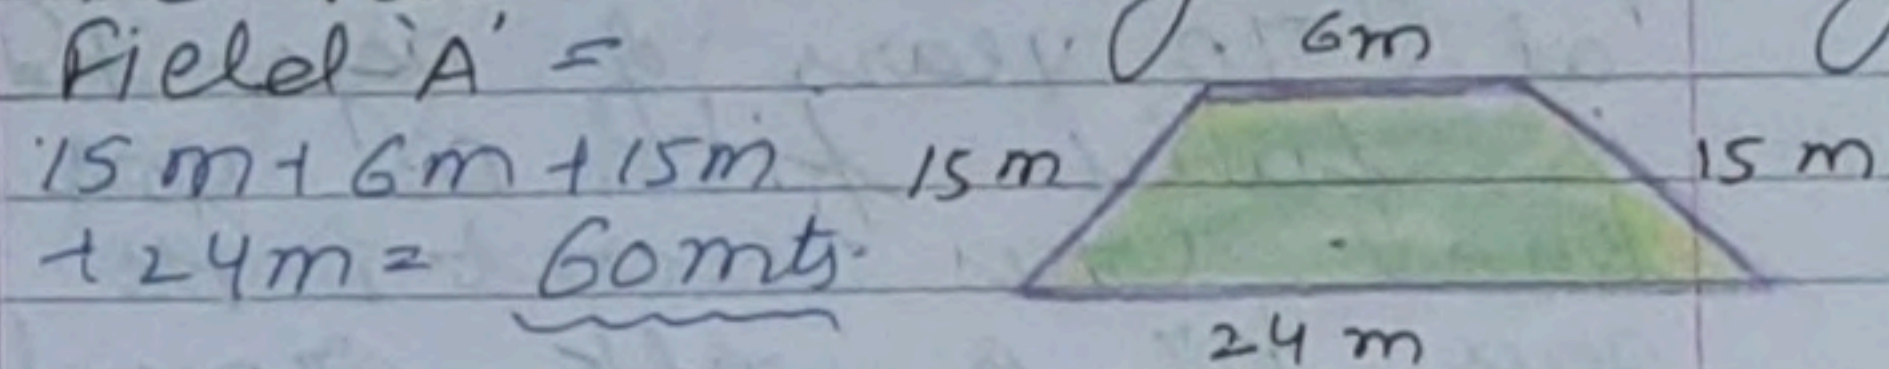 Field 'A' =
15m + 6m + 15m
+ 24m = 60mts.
6m
15m
15 m
24 m